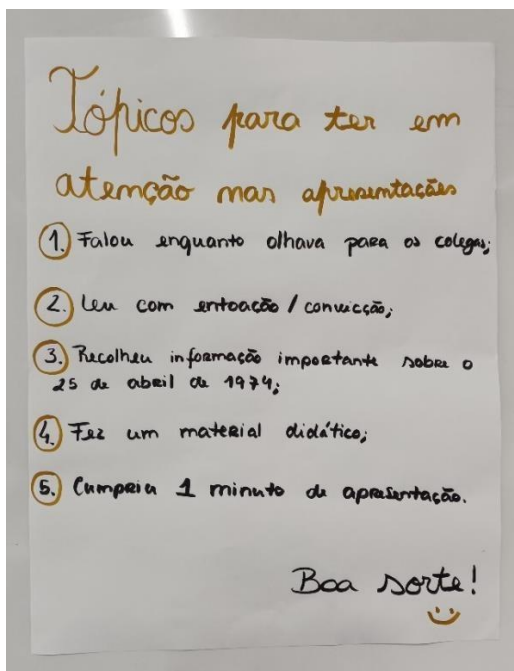 Tópicos para ter em
atenção nas apresentações
1. Falou enquanto olhava para os colegas;
2. Leu com entoação / convicção;
3. Recolheu informação importante sobre o
25 de abril de 1974;
4. Fez um material didático;
5. Cumpriu 1 minuto de apresentação.
Boa sorte!